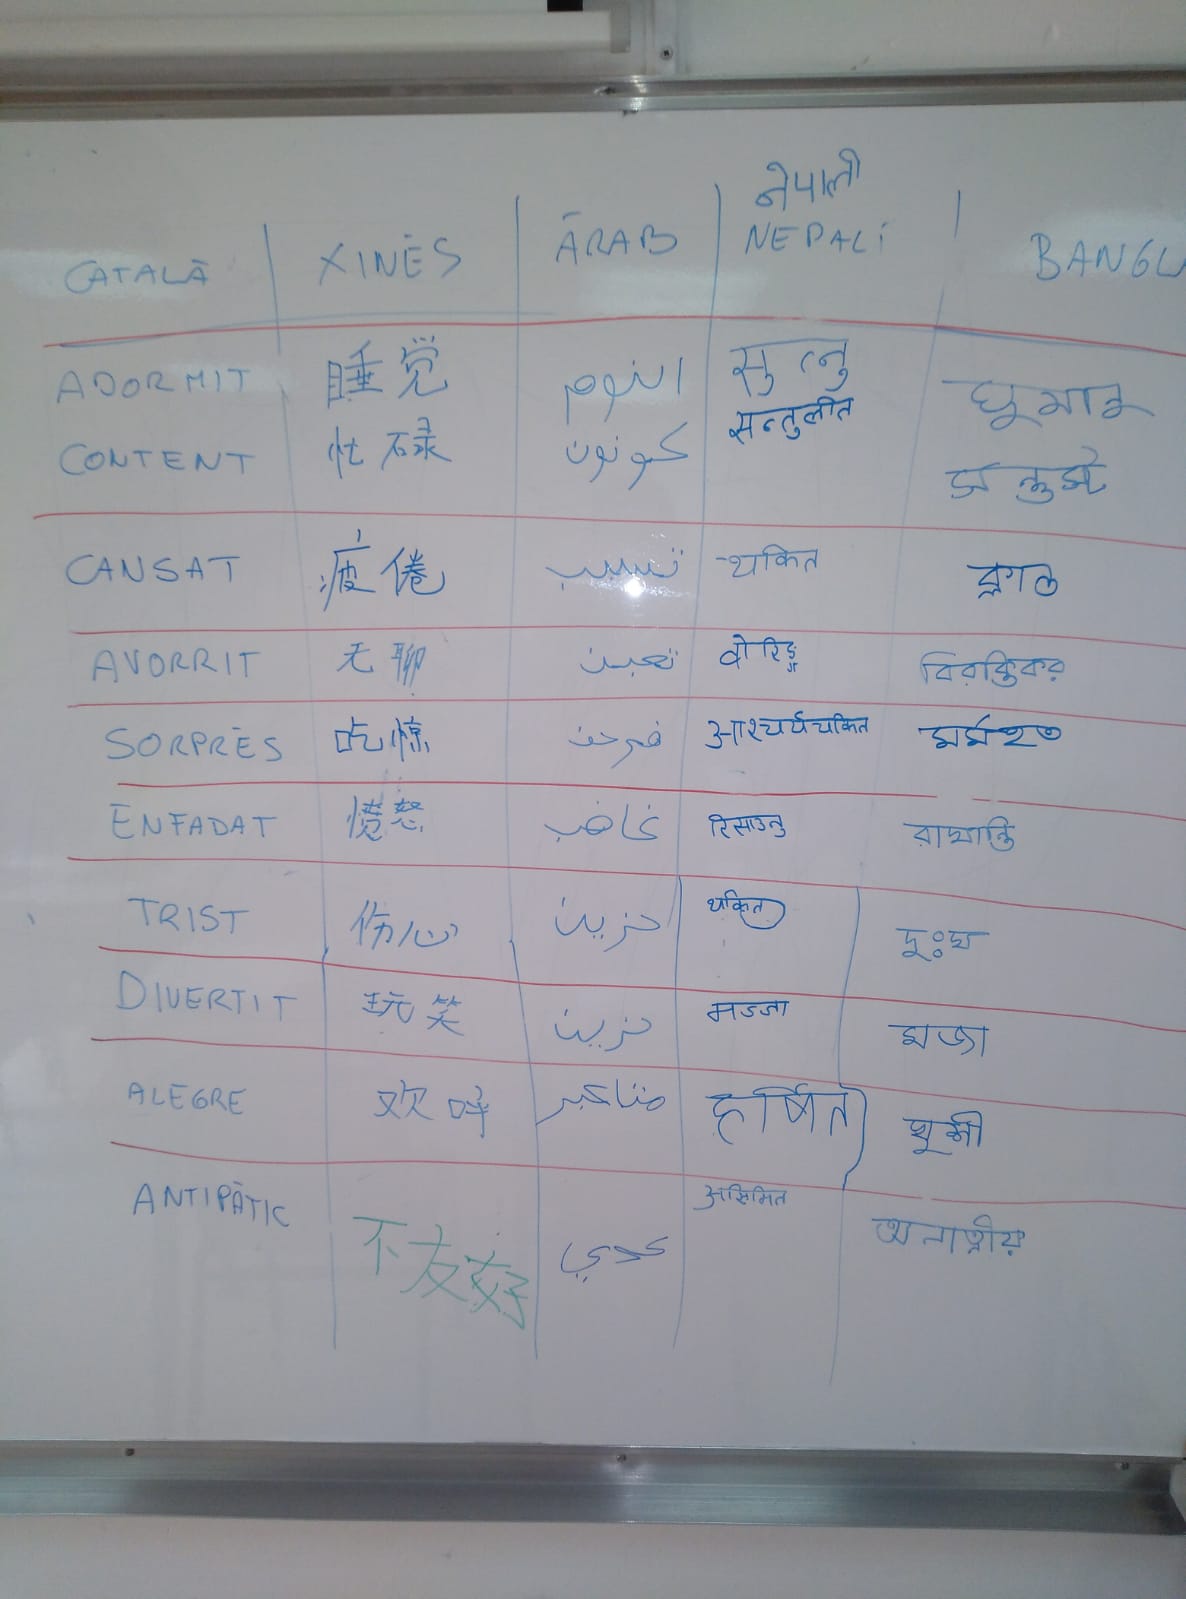 नेपाली
CATALÀ XINÈS ÀRAB NEPALÍ BANGL
ADORMIT 睡觉 النوم सुत्नु
CONTENT 忙碌 كونون सन्तुलीत
CANSAT 疲倦 تسبب थकित
AVORRIT 无聊 تعبين वोरिङ्ग বিরক্তিকর
SORPRÈS 吃惊 فرحن आश्चर्यचकित মর্মহত
ENFADAT 愤怒 غاضب रिसाउनु
TRIST 伤心 حزين थकित দুঃঘ
DIVERTIT 玩笑 حزين मज्जा মজা
ALEGRE 欢呼 हर्षित
ANTIPÀTIC 不友好 عدي असिमित